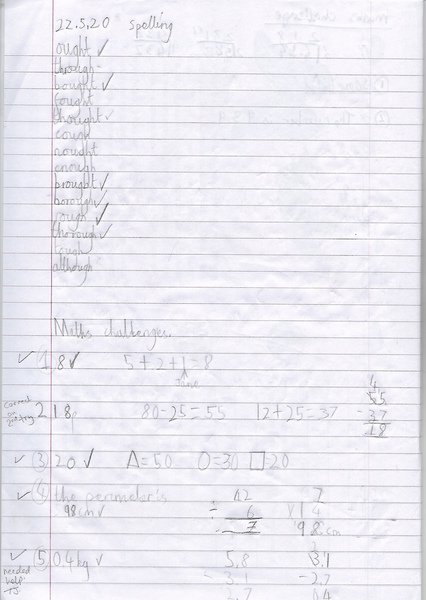 22.5.20 Spelling
ought ✓
through
bought ✓
fought
thought ✓
cough
nought
enough
brought ✓
borough ✓
rough ✓
thorough ✓
tough
although
Maths challenges.
✓ 1 8 ✓ 5 + 2 + 1 = 8
Jane
2 18p 80-25=55 12+25=37
55
-37
18
✓ 3 20 ✓ △=50 O=30 □=20
✓ 4 the perimeter is
98cm ✓
42 7
÷ 6 × 14
7 98cm
✓ 5 0.4kg ✓ 5.8 3.1
needed - 3.1 - 2.7
help 2.7 0.4